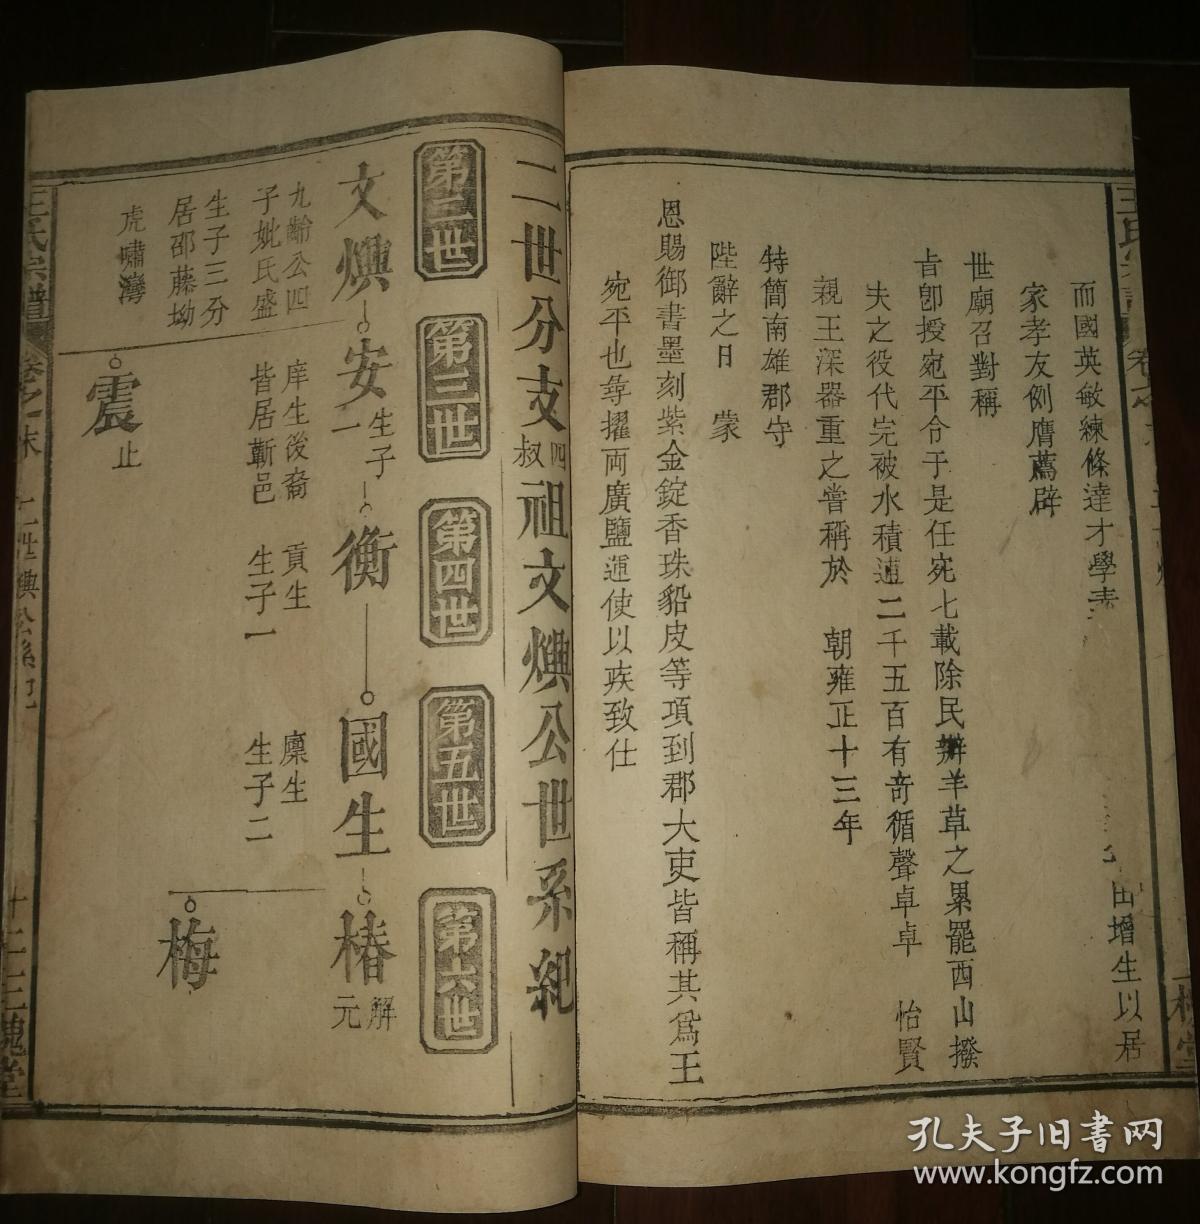 出增生以居
而國英敏練條達才學
家孝友例膺薦辟
世廟召對稱
旨卽授宛平令于是任宛七載除民辦羊草之累罷西山撥
夫之役代完被水積逋二千五百有奇循聲卓卓 怡賢
親王深器重之嘗稱於 朝雍正十三年
特簡南雄郡守
陛辭之日 蒙
恩賜御書墨刻紫金錠香珠貂皮等項到郡大吏皆稱其爲王
宛平也等擢両廣鹽運使以疾致仕
二世分支四叔祖文燠公世系紀
第二世 第三世 第四世 第五世 第六世
文燠 安 生子一 衡 國生 椿 解元
九齡公四
子妣氏盛
生子三分
居邵藤坳
虎嘯灣
庠生後裔
皆居蘄邑
貢生
生子一
廪生
生子二
梅
震 止
王氏宗譜 卷之末 二世燠公系紀 十二 三槐堂
孔夫子旧书网
www.kongfz.com